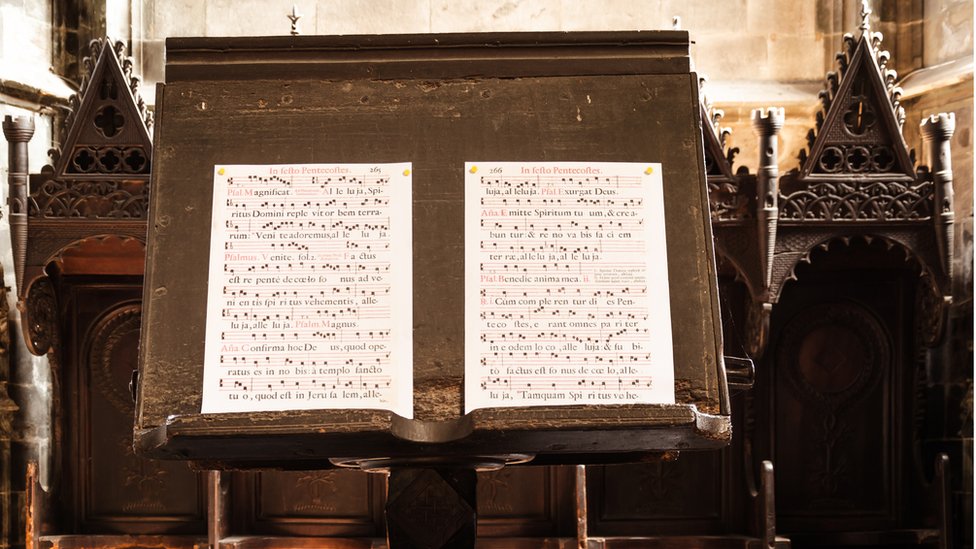 In festo Pentecostes. 265
Psal. Magnificat. Al le luja, Spi-
ritus Domini reple vit or bem terra-
rum: Veni te adoremus, al le lu ja.
Psalmus. Venite. fol. 2. Fa ctus
est re pentè de cœlo so nus ad ve-
ni en tis spi ri tus vehementis, alle-
lu ja, alle lu ja. Psalm. Magnus.
Aña Confirma hoc De us, quod ope-
ratus es in no bis: à templo sancto
tu o, quod est in Jeru sa lem, alle-
266 In festo Pentecostes.
luja, al leluja. Psal. Exurgat Deus.
Aña. E mitte Spiritum tu um, & crea-
bun tur: & re no va bis fa ci em
ter ræ, al le lu ja, al le lu ja.
Psal. Benedic anima mea.
Cùm com ple ren tur di es Pen-
te co stes, e rant omnes pa ri ter
in e odem lo co, alle luja: & su bi-
tò factus est so nus de cœ lo, al le-
lu ja, Tamquam Spi ri tus ve he-